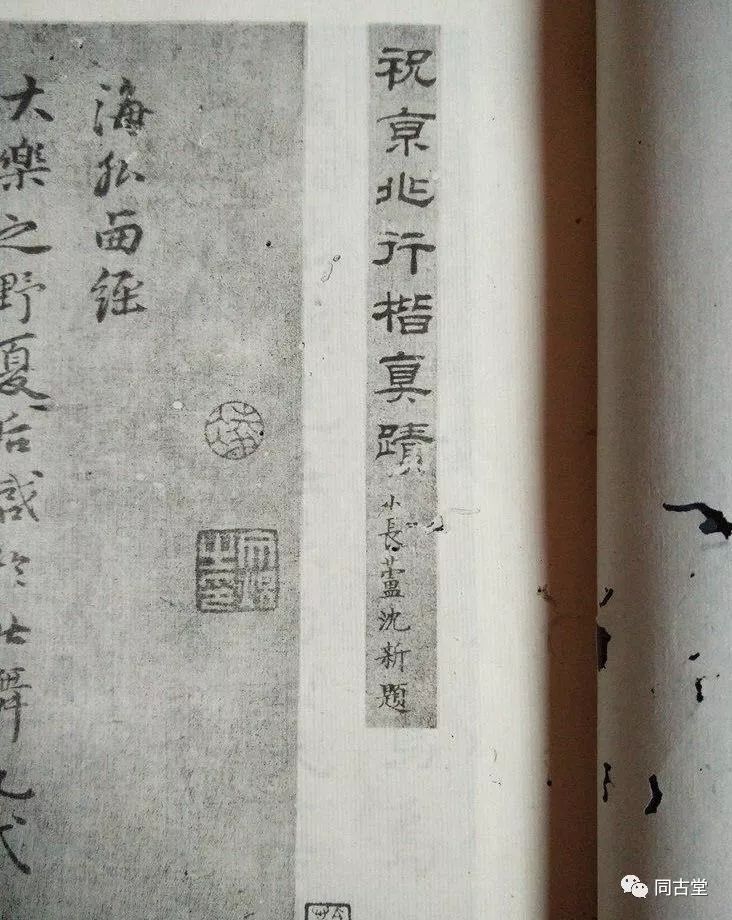 祝京兆行楷真蹟
小長蘆沈新題
海外西經
大樂之野夏后啟於此舞九代
同古堂